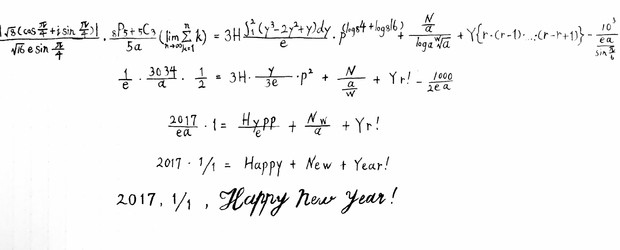 |√8(cos π/4 + i sin π/4)| / √16 e sin π/4 · 8P5+5C3 / 5a (lim n→∞ Σ k=1 n k) = 3H ∫1 2 (y³-2y²+y)dy / e · p^(log84+log816) + N/a / loga ʷ√a + Y{r·(r-1)·…·(r-r+1)} - 10³ / ea / sin π/6
1/e · 3034/a · 1/2 = 3H · y/3e · p² + N / a/w + Yr! - 1000/2ea
2017/ea · 1 = Hypp/e + Nw/a + Yr!
2017 · 1/1 = Happy + New + Year!
2017, 1/1, Happy New Year!